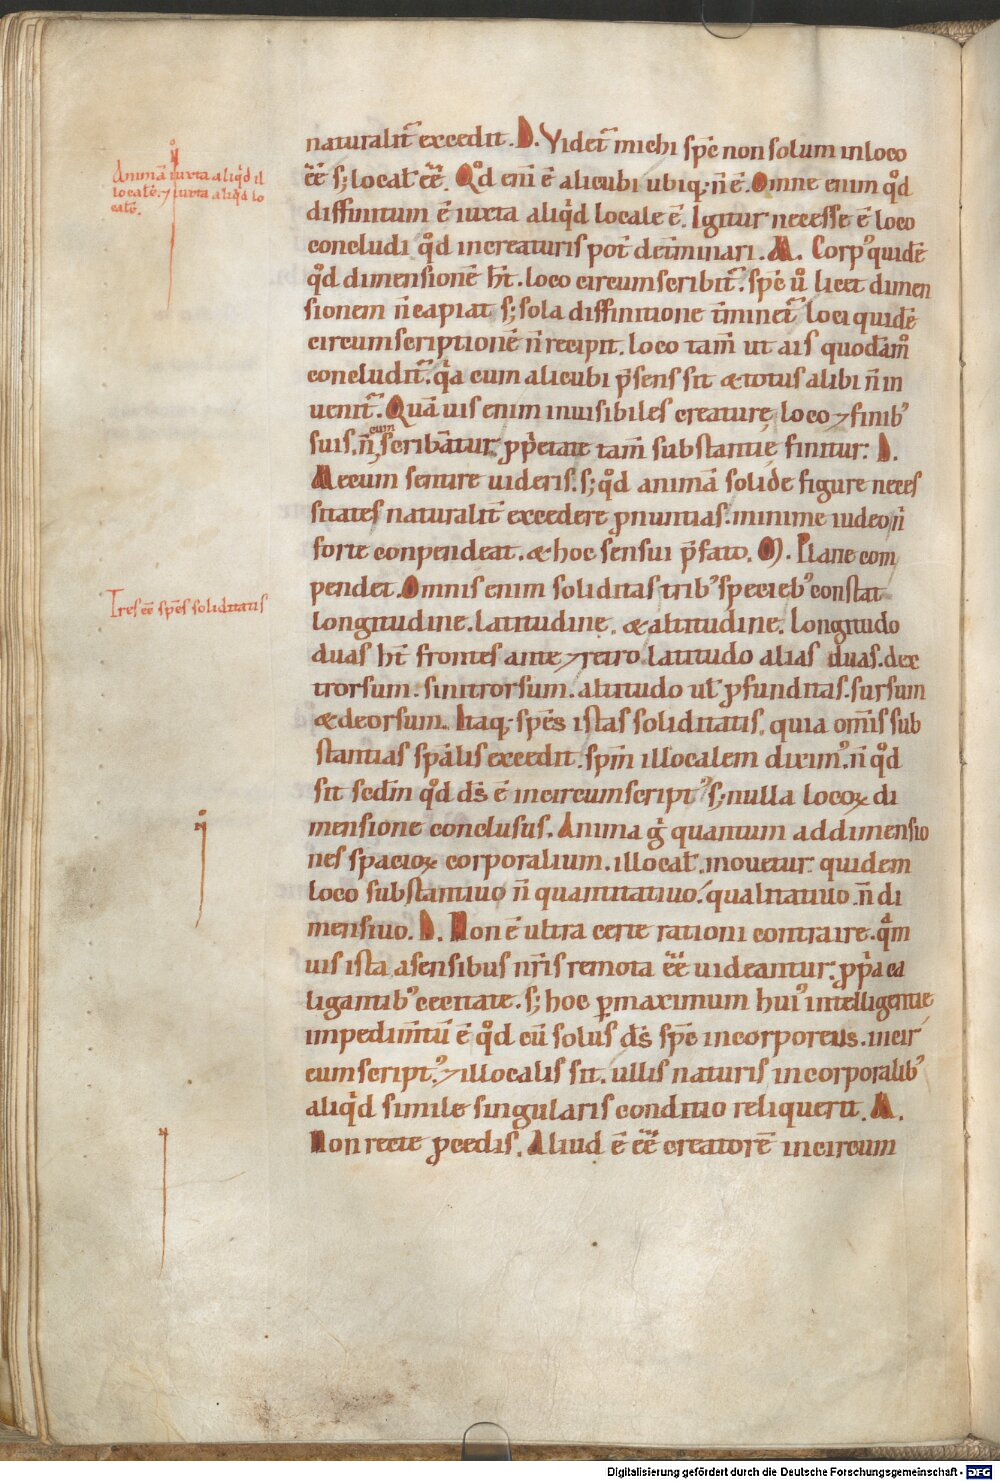 naturalit̄ excedit. D. Videt̄ michi sp̄c non solum in loco
Animā iuxta aliq̇d il
localē. ⁊ iuxta aliq̇d lo
calē.
ēē s; local̄ ēē. Qd̊ eni ē alicubi ubiq; n̄ ē. Omne enim qd̊
diffinitum ē iuxta aliq̇d locale ē. Igitur necesse ē loco
concludi qd̊ in creaturis pot̄ det̄minari. M. Corp᾿ quidē
qd̊ dimensionē ht̄. loco circumscribit̄. sp̄c ů licet dimen
sionem n̄ capiat s; sola diffinitione t̄minet̄ loci quidē
circumscriptionē n̄ recipit. loco tam̄ ut ais quodāmo
concludit̄. q̇a cum alicubi p̄sens sit & totus alibi n̄ in
uenit̄. Quāuis enim inuisibiles creaturę loco ⁊ finib᾿
suis. n̄ cum scribāntur. pṗetate tam̄ substantię finitur. D.
Mecum sentire uideris. s; qd̊ animā solide figure neces
sitates naturalit̄ excedere pnuntias. minime iudeo n̄
forte conpendeat. & hoc sensui p̄fato. M. Plane com
pendet. Omnis enim soliditas trib᾿ specieb᾿ constat
Tres ēē sp̄es soliditatis
longitudine. latitudine. & altitudine. Longitudo
duas ht̄ frontes ante ⁊ retro. latitudo alias duas. dex
trorsum. sinistrorsum. altitudo ul̄ pfunditas. sursum
& deorsum. Itaq; sp̄es istas soliditatis. quia om̄is sub
stantias sp̄alis excedit. sp̄m illocalem dixim᾿. n̄ qd̊
sit sedm̄ qd̊ ds̄ ē incircumscript᾿ s; nulla locoꝝ di
mensione conclusus. Anima g̊ quantum ad dimensio
nes spacioꝝ corporalium. illocal̄. mouetur quidem
loco substantiuo n̄ quantitatiuo. qualitatiuo. n̄ di
mensiuo. D. Non ē ultra certe rationi contraire. q̊m
uis ista a sensibus nr̄is remota ēē uideantur. pṗa ca
ligantib᾿ cecitate. s; hoc ꝑmaximum hui᾿ intelligentie
impedim̄tū ē qd̊ cū solus ds̄ sp̄c incorporeus. incir
cumscript᾿. ⁊ illocalis sit. ullis naturis incorporalib᾿
aliq̇d simile singularis conditio reliquerit. M.
Non recte pcedis. Aliud ē ēē creatorē incircum
Digitalisierung gefördert durch die Deutsche Forschungsgemeinschaft - DFG